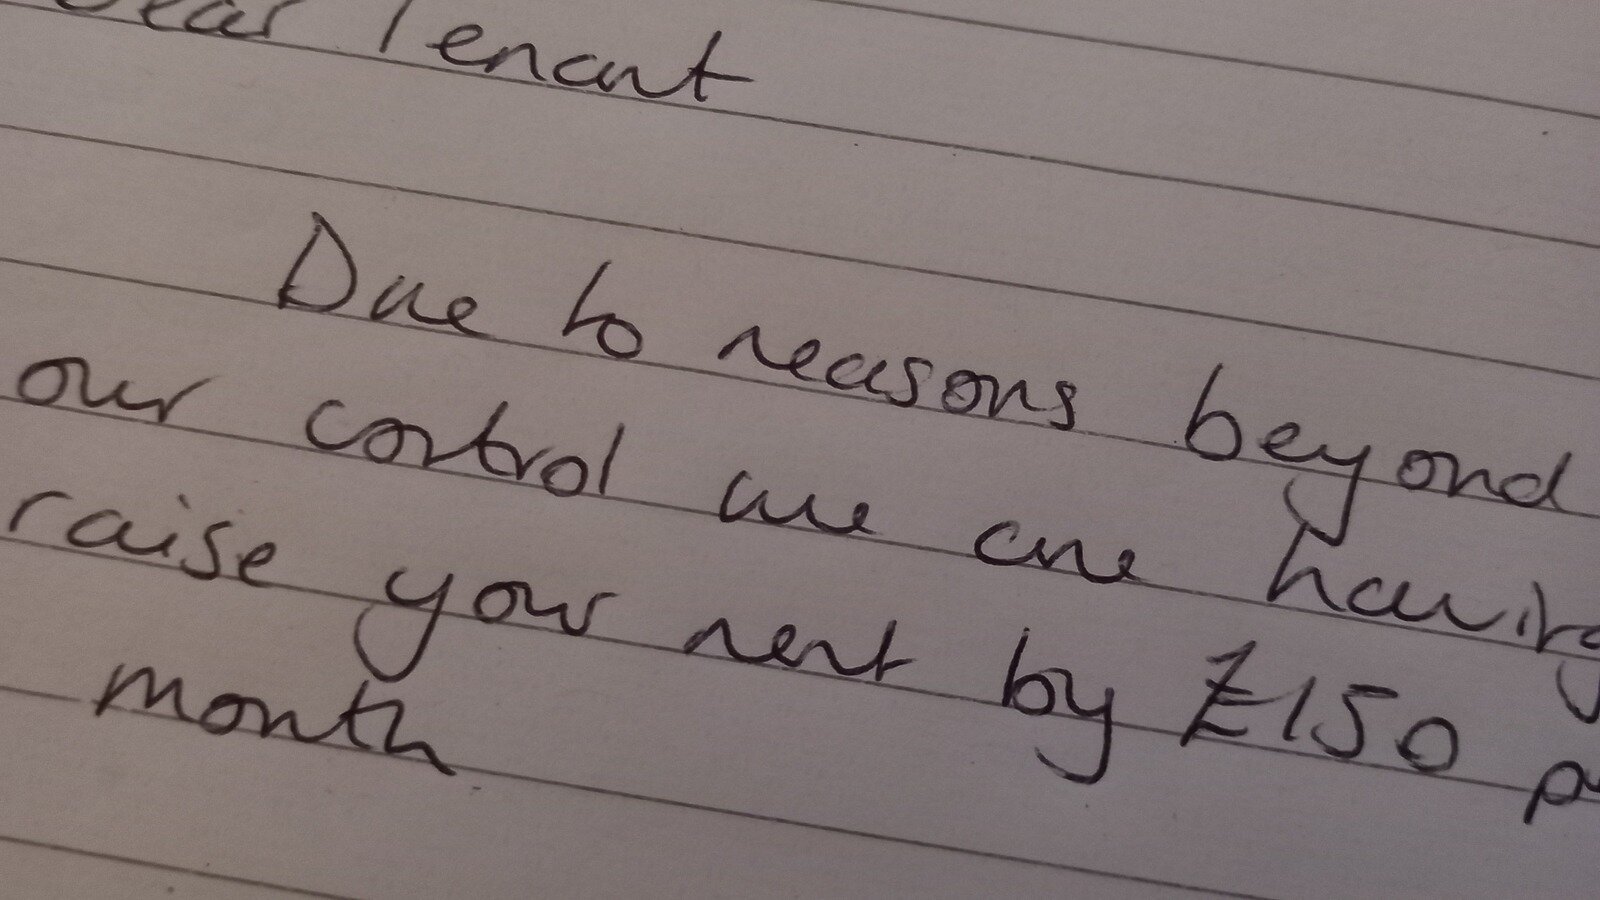 Dear Tenant
Due to reasons beyond
our control we are having
raise your rent by £150
month